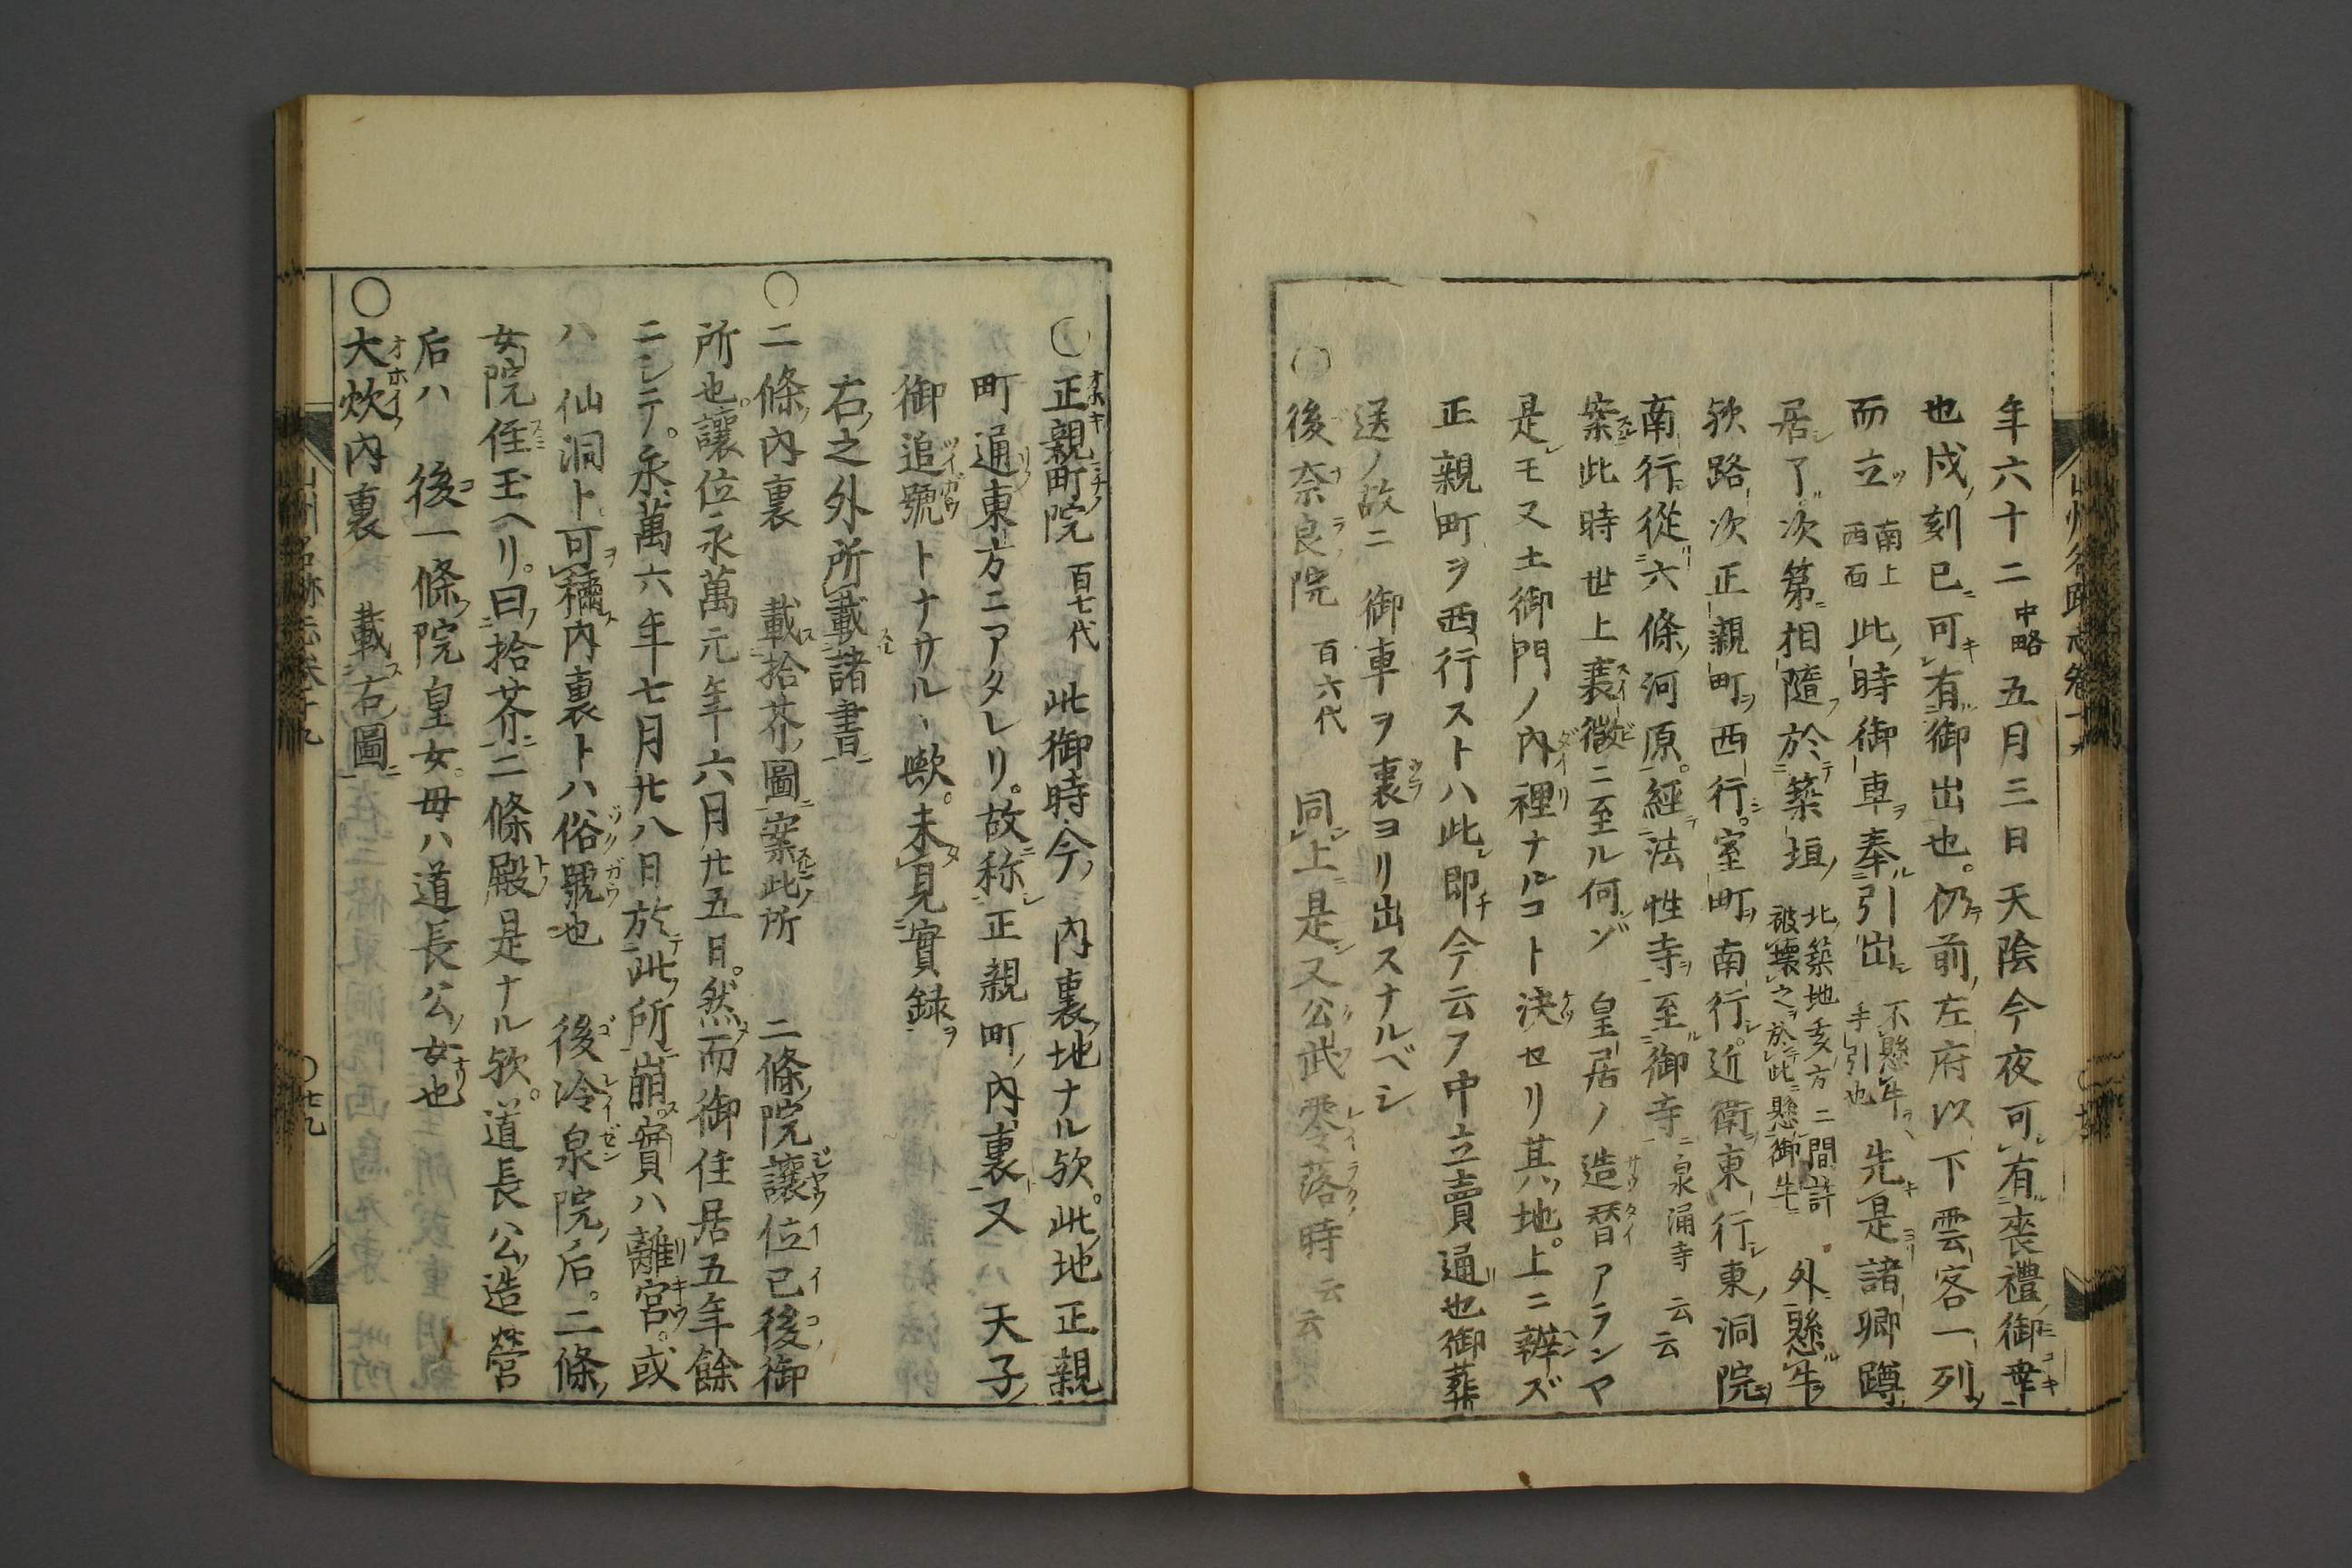 年六十二中略五月三日天陰今夜可有喪禮御幸
也戌刻已可有御出也。仍前左府以下雲客一列
而立南上西面此時御車奉引出不懸牛手引也先是諸卿蹲
居了次第相隨於築垣北築地亥方二間許被壊之於此懸御牛外懸牛
欤路次正親町西行。室町南行近衛東行東洞院
南行從六條河原。經法性寺至御寺泉涌寺云云
案此時世上衰微ニ至ル何ゾ　皇居ノ造替アランヤ
是モ又土御門ノ內裡ナルコト決セリ其地。上ニ辨ズ
正親町ヲ西行ストハ此即今云フ中立賣通也御葬
送ノ故ニ　御車ヲ裏ヨリ出スナルベシ
○後奈良院　百六代　同上是又公武零落時云云
○正親町院　百七代　此御時今　內裏地ナル欤。此地正親
町通東方ニアタレリ。故称正親町內裏又　天子
御追號トナサルヽ歟。未見實録
右之外所載諸書
○二條內裏　載拾芥圖案此所　二條院讓位已後御
所也。讓位永萬元年六月廿五日。然而御住居五年餘
ニシテ。永萬六年七月廿八日於此所崩。實ハ離宮。或
ハ　仙洞ト可稱內裏トハ俗號也　後冷泉院后。二條
女院住玉ヘリ。曰拾芥二條殿是ナル欤。道長公造營
后ハ　後一條院皇女。母ハ道長公女也
○大炊內裏　載右圖